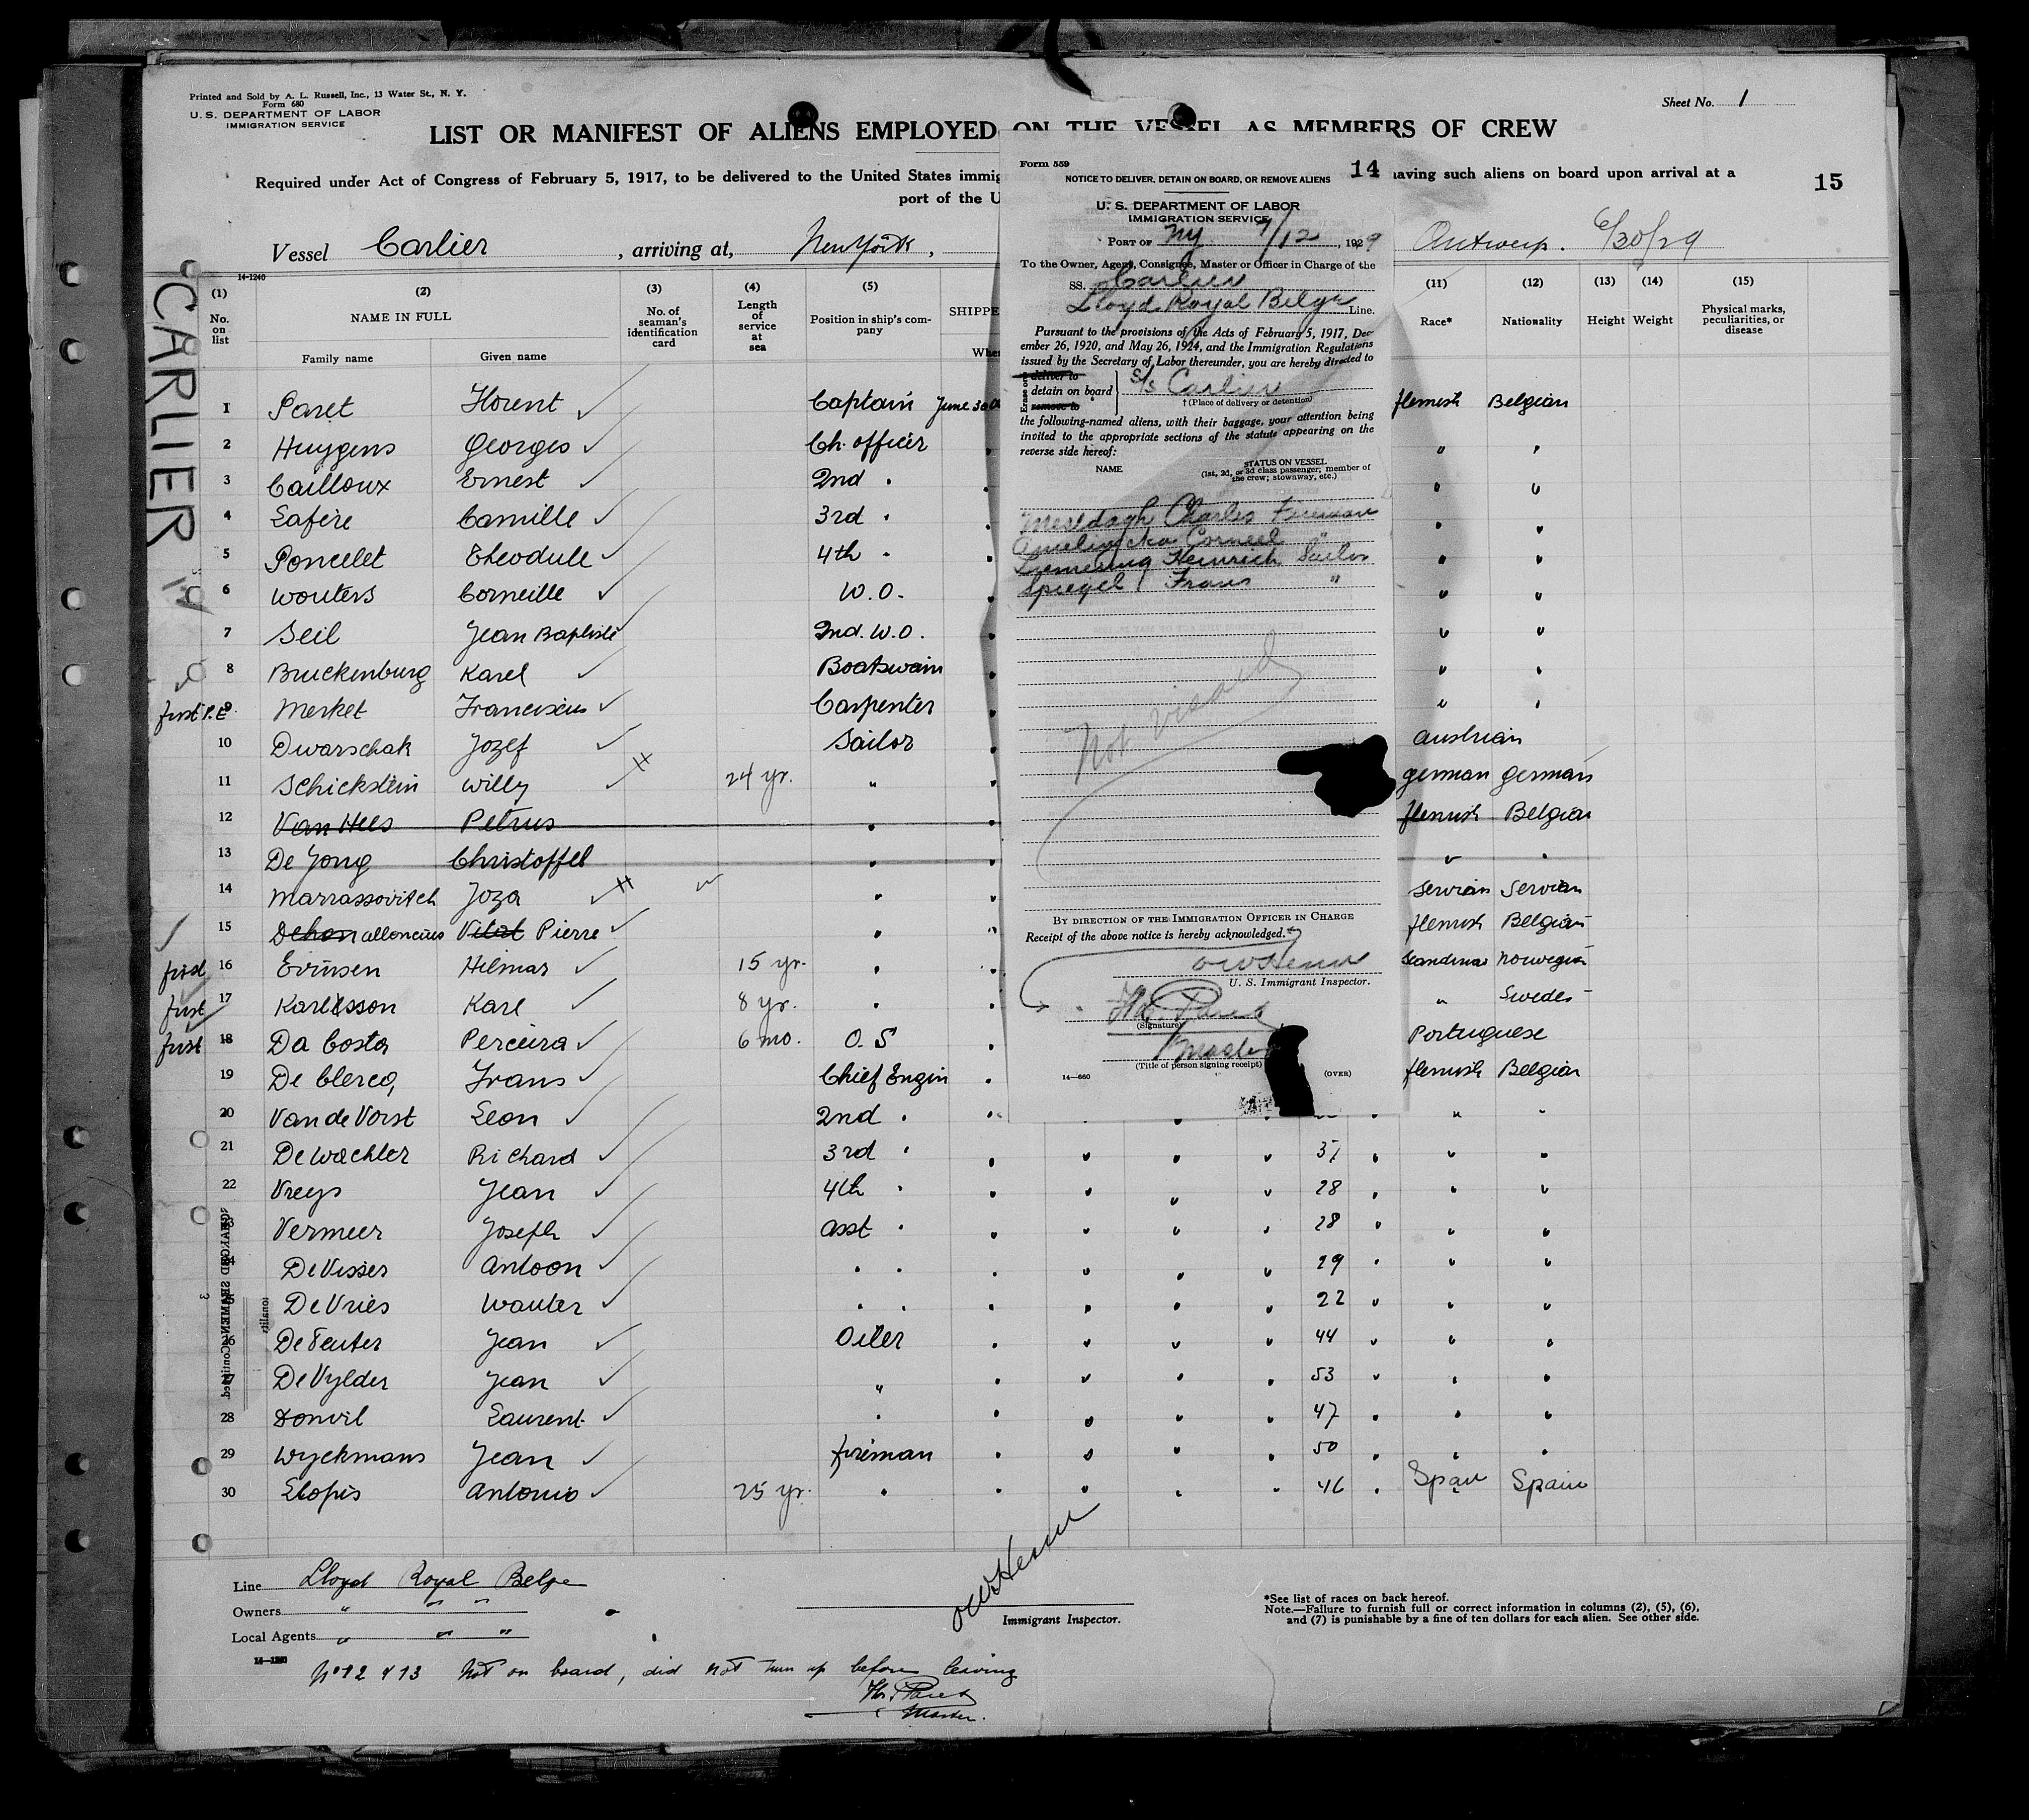 Printed and Sold by A. L. Russell, Inc., 13 Water St., N. Y.
Form 680
U. S. DEPARTMENT OF LABOR
IMMIGRATION SERVICE
Sheet No. 1
LIST OR MANIFEST OF ALIENS EMPLOYED ON THE VESSEL AS MEMBERS OF CREW
Required under Act of Congress of February 5, 1917, to be delivered to the United States immig
having such aliens on board upon arrival at a
port of the U
15
Vessel Carlier, arriving at, New York,
Antwerp. 6/30/29
14-1240
CARLIER
(1) No. on list
(2) NAME IN FULL
Family name Given name
(3) No. of seaman's identification card
(4) Length of service at sea
(5) Position in ship's company
SHIPPE
Whe
(11) Race*
(12) Nationality
(13) Height
(14) Weight
(15) Physical marks, peculiarities, or disease
1 Paret Florent Captain June 30th flemish Belgian
2 Huygens Georges Ch. officer " "
3 Cailloux Ernest 2nd " " "
4 Lafère Camille 3rd " " "
5 Poncelet Théodule 4th " " "
6 Wouters Corneille W.O. " "
7 Seil Jean Baptiste 2nd. W.O. " "
8 Bruckenburg Karel Boatswain " "
first P.E. 9 Merket Franciscus Carpenter " "
10 Dwarschak Jozef Sailor Austrian
11 Schickstein Willy 24 yr. " german german
12 Van Hees Petrus " flemish Belgian
13 De Jong Christoffel " " "
14 Marrassovitch Joza " Servian Servian
15 Dehon alloncius Vital Pierre " flemish Belgian
first 16 Evinsen Hilmar 15 yr. " Scandina Norwegian
first 17 Karlsson Karl 8 yr. " " Swedes
first 18 Da Costa Pereira 6 mo. O. S Portuguese
19 De Clercq Frans Chief Engin flemish Belgian
20 Van de Vorst Leon 2nd " " "
21 De Wachter Richard 3rd " 37 " "
22 Vreys Jean 4th " 28 " "
23 Vermeer Joseph asst " 28 " "
24 De Visser Antoon " " 29 " "
25 De Vries Wouter " " 22 " "
26 De Teuter Jean Oiler 44 " "
27 De Vylder Jean " 53 " "
28 Donvil Laurent " 47 " "
29 Wyckmans Jean fireman 50 " "
30 Llopis Antonio 25 yr. " 46 Span Spain
Line Lloyd Royal Belge
Owners " " "
Local Agents " " "
Immigrant Inspector.
*See list of races on back hereof.
Note.—Failure to furnish full or correct information in columns (2), (5), (6),
and (7) is punishable by a fine of ten dollars for each alien. See other side.
14-1240
No 12 & 13 Not on board, did not turn up before leaving
Flor. Paret
Master.
Form 559
14
NOTICE TO DELIVER, DETAIN ON BOARD, OR REMOVE ALIENS
U. S. DEPARTMENT OF LABOR
IMMIGRATION SERVICE
PORT OF NY 7/12, 1929
To the Owner, Agent, Consignee, Master or Officer in Charge of the
SS. Carlier
Lloyd Royal Belge Line.
Pursuant to the provisions of the Acts of February 5, 1917, Dec-
ember 26, 1920, and May 26, 1924, and the Immigration Regulations
issued by the Secretary of Labor thereunder, you are hereby directed to
deliver to
detain on board S/s Carlier
remove to
†(Place of delivery or detention)
the following-named aliens, with their baggage, your attention being
invited to the appropriate sections of the statute appearing on the
reverse side hereof:
NAME
STATUS ON VESSEL
(1st, 2d, or 3d class passenger; member of
the crew; stowaway, etc.)
Meeldagh Charles Fireman
Corneel "
Heinrich Sailor
Spiegel Frans "
Not visaed
BY DIRECTION OF THE IMMIGRATION OFFICER IN CHARGE
Receipt of the above notice is hereby acknowledged.
U. S. Immigrant Inspector.
Flor. Paret
(Signature)
Master
(Title of person signing receipt)
14—660
(OVER)